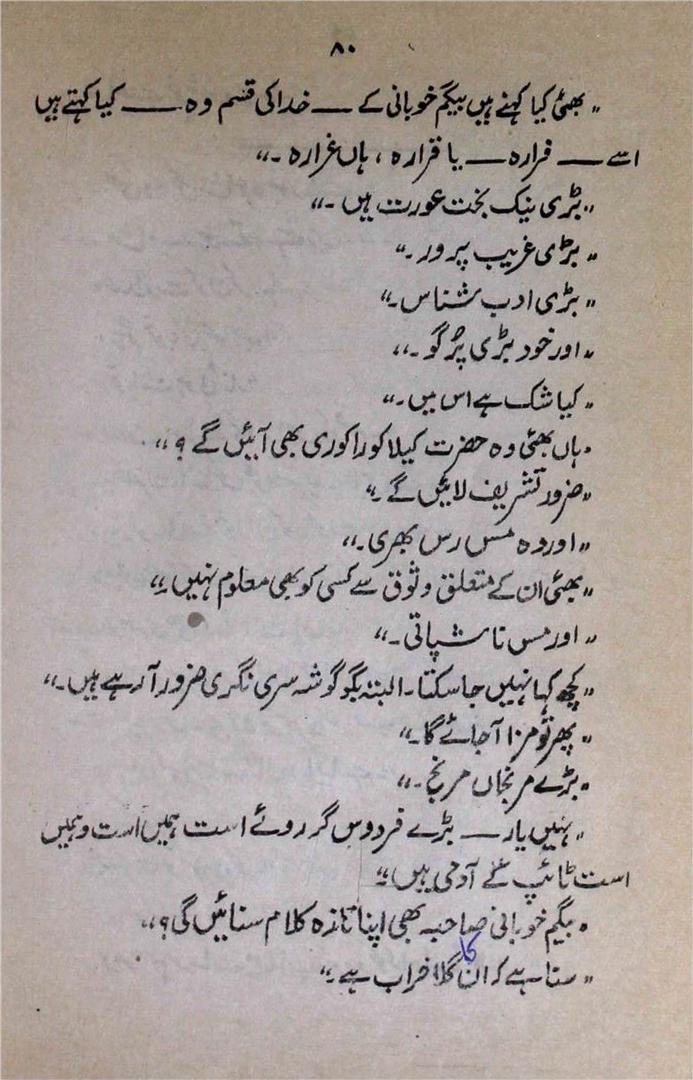 ۸۰
"بھئی کیا کہنے ہیں بیگم خوبانی کے — خدا کی قسم وہ — کیا کہتے ہیں
اسے — فرارہ — یا قرارہ ، ہاں غرارہ ۔"
"بڑی نیک بخت عورت ہیں ۔"
"بڑی غریب پرور ۔"
"بڑی ادب شناس ۔"
"اور خود بڑی پُرگو ۔"
"کیا شک ہے اس میں ۔"
"ہاں بھئی وہ حضرت کیلا کوراکوری بھی آئیں گے ؟"
"ضرور تشریف لائیں گے ۔"
"اور وہ مس رس بھری ۔"
"بھئی ان کے متعلق وثوق سے کسی کو بھی معلوم نہیں ۔"
"اور مس ناشپاتی ۔"
"کچھ کہا نہیں جا سکتا ۔ البتہ بگوگوشہ سری نگری ضرور آ رہے ہیں ۔"
"پھر تو مزا آ جائے گا ۔"
"بڑے مرنجاں مرنج ۔"
"نہیں یار — بڑے فردوس گر روئے است ہمیں است و ہمیں
است ٹائپ کے آدمی ہیں ۔"
"بیگم خوبانی صاحبہ بھی اپنا تازہ کلام سنائیں گی ؟"
"سنا ہے کہ ان کا گلا خراب ہے ۔"